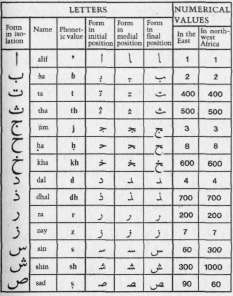 LETTERS NUMERICAL VALUES
Form in iso-lation Name Phonet-ic value Form in initial position Form in medial position Form in final position In the East In north-west Africa
ا alif ’ ا ـا ـا 1 1
ب ba b بـ ـبـ ـب 2 2
ت ta t تـ ـتـ ـت 400 400
ث tha th ثـ ـثـ ـث 500 500
ج jim j جـ ـجـ ـج 3 3
ح ḥa ḥ حـ ـحـ ـح 8 8
خ kha kh خـ ـخـ ـخ 600 600
د dal d د ـد ـد 4 4
ذ dhal dh ذ ـذ ـذ 700 700
ر ra r ر ـر ـر 200 200
ز zay z ز ـز ـز 7 7
س sin s سـ ـسـ ـس 60 300
ش shin sh شـ ـشـ ـش 300 1000
ص sad ṣ صـ ـصـ ـص 90 60